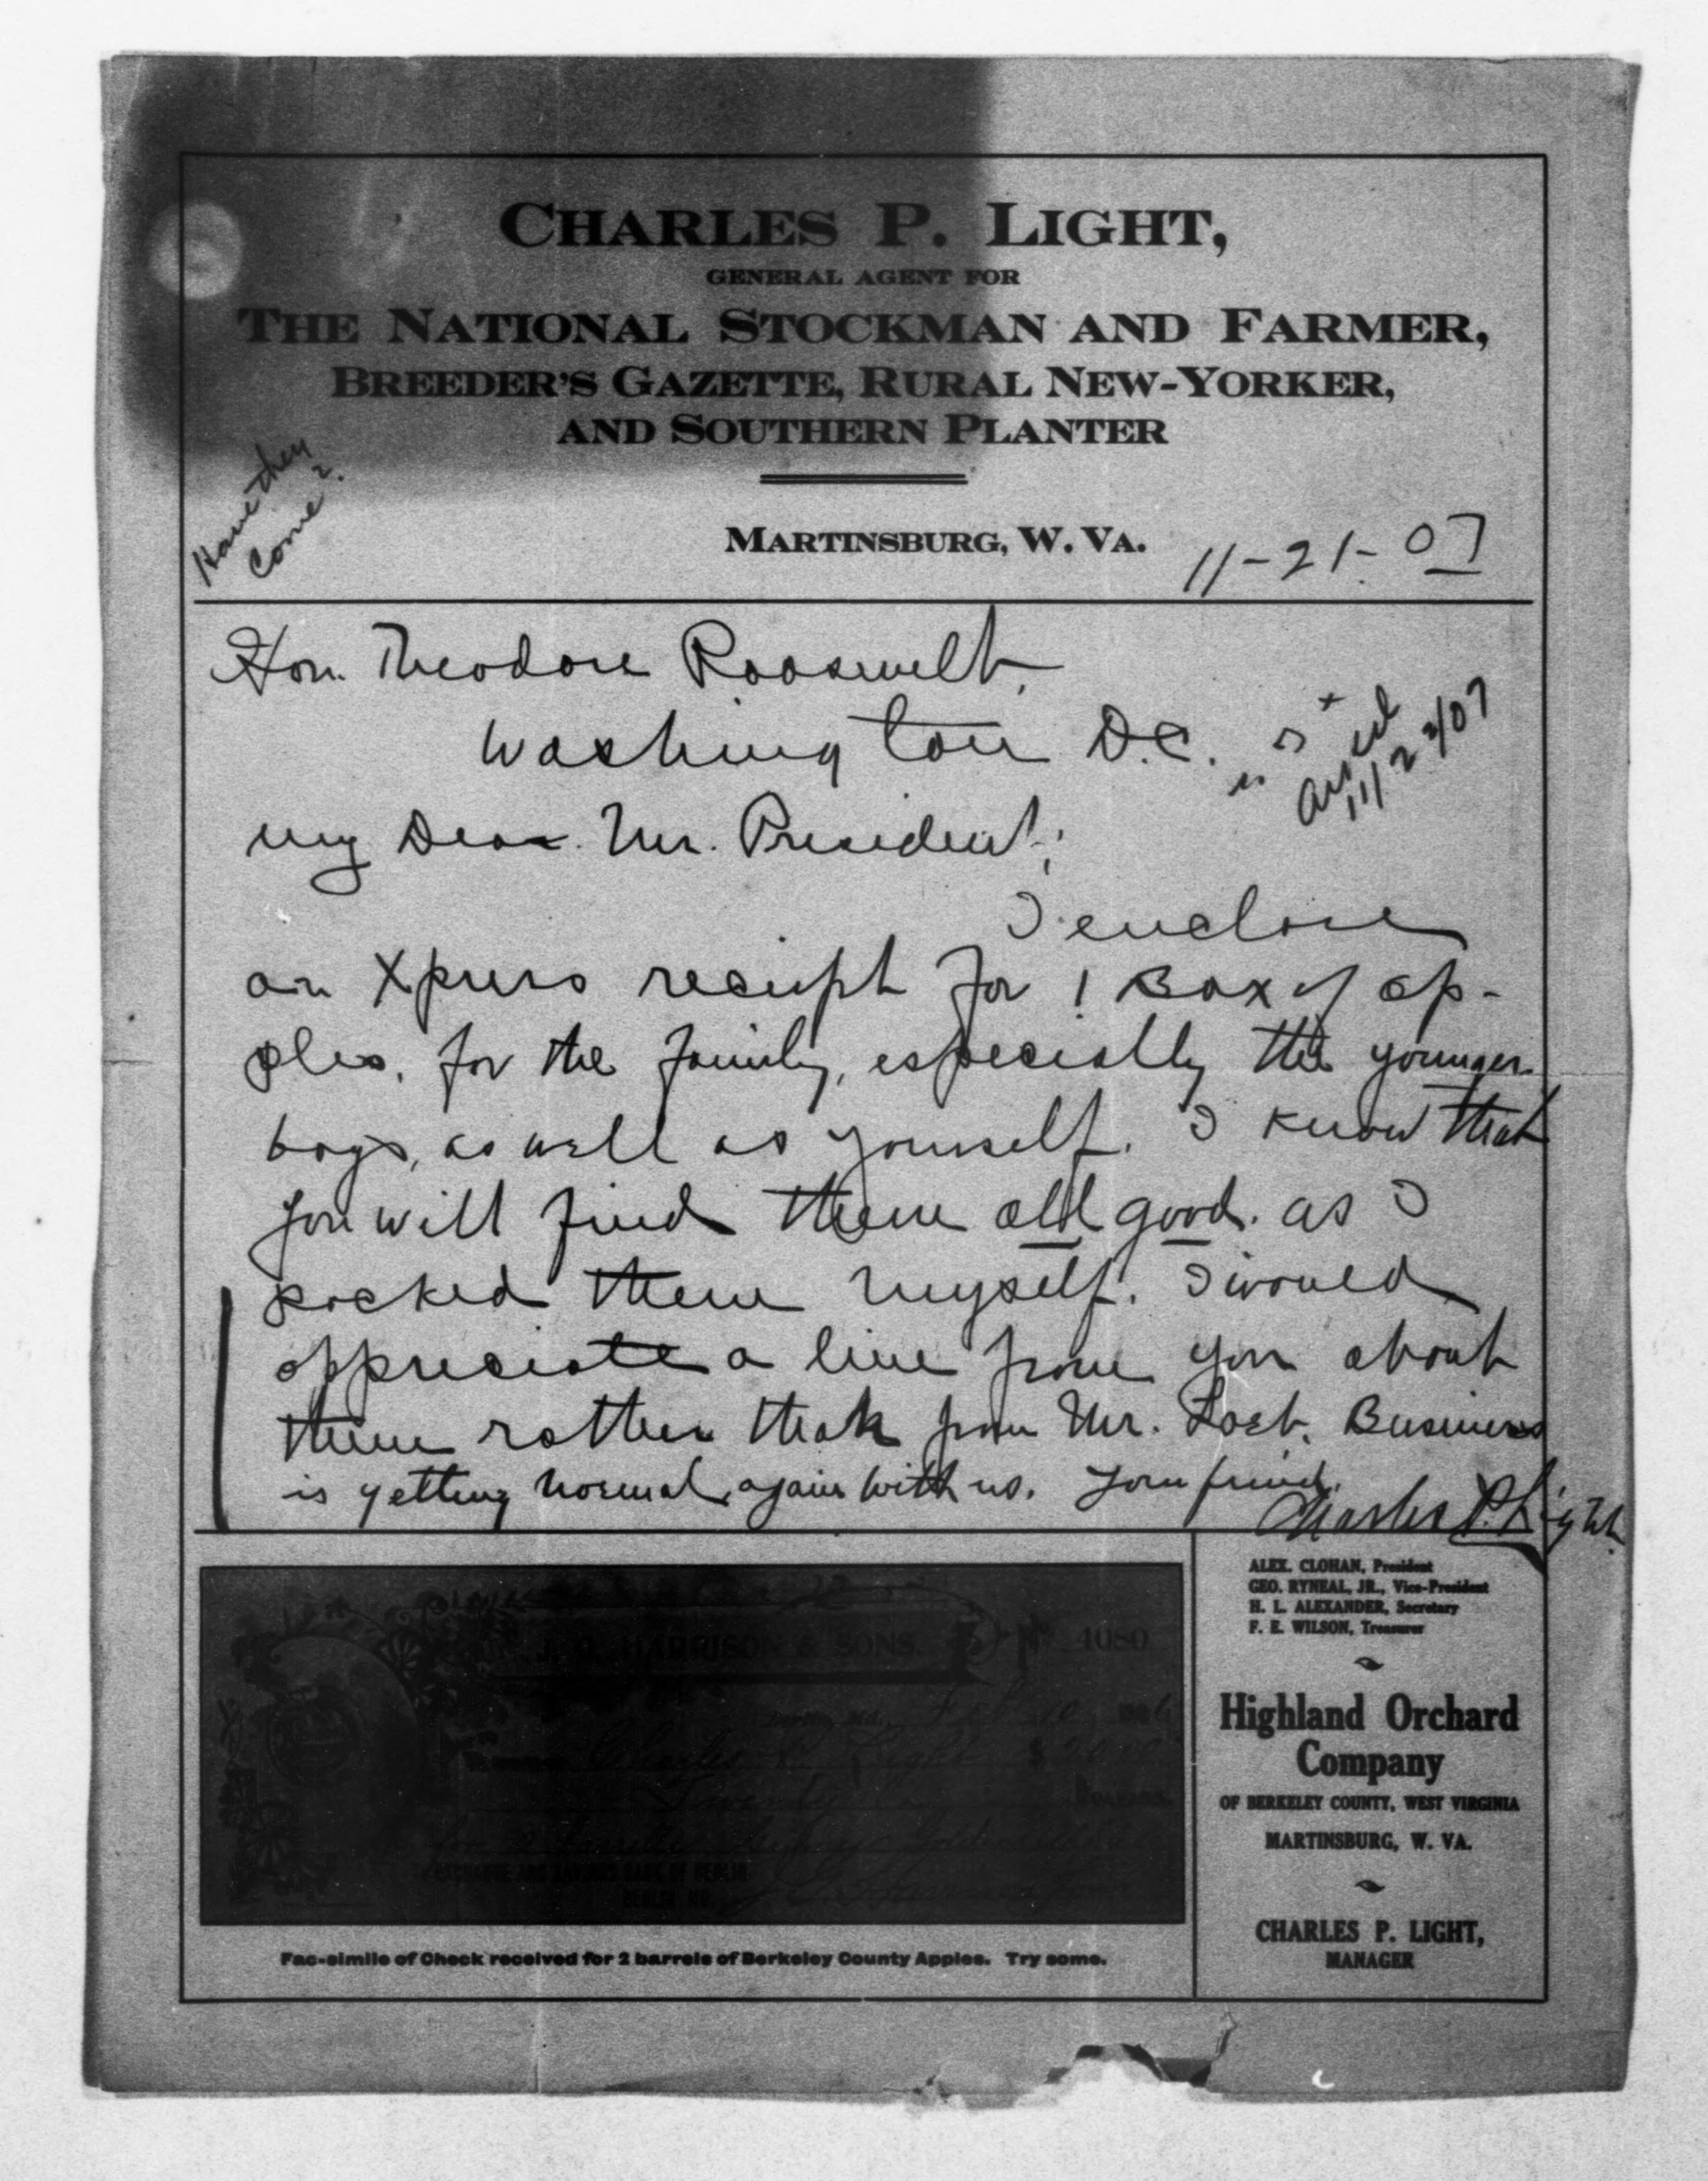 CHARLES P. LIGHT,
GENERAL AGENT FOR
THE NATIONAL STOCKMAN AND FARMER,
BREEDER'S GAZETTE, RURAL NEW-YORKER,
AND SOUTHERN PLANTER
Have they
Come?
MARTINSBURG, W. VA. 11-21-07
Hon. Theodore Roosevelt,
Washington D.C.
Ansd
11/23/07
My Dear Mr. President;
I enclose
an Xpress receipt for 1 Box of ap-
ples, for the family, especially the younger
boys, as well as yourself. I know that
you will find them all good. as I
packed them myself. I would
appreciate a line from you about
them rather than from Mr. Loeb. Business
is getting normal again with us. Your friend,
Charles P. Light.
J. G. HARRISON & SONS. No 4080
Feb 10, 1906
Charles P. Light $20.00
Twenty DOLLARS
EXCHANGE AND SAVINGS BANK OF BERLIN
BERLIN MD.
Fac-simile of Check received for 2 barrels of Berkeley County Apples. Try some.
ALEX. CLOHAN, President
GEO. RYNEAL, JR., Vice-President
H. L. ALEXANDER, Secretary
F. E. WILSON, Treasurer
Highland Orchard
Company
OF BERKELEY COUNTY, WEST VIRGINIA
MARTINSBURG, W. VA.
CHARLES P. LIGHT,
MANAGER